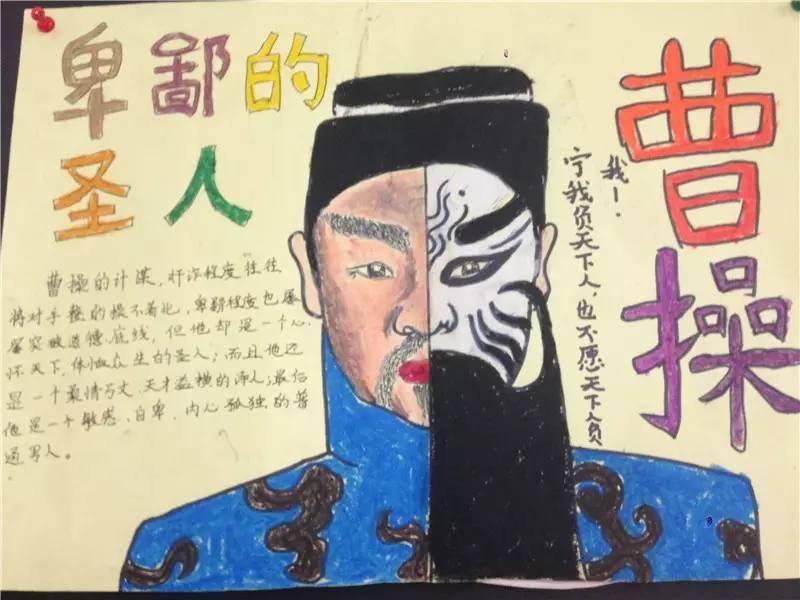 卑鄙的
圣人
曹操的计谋,奸诈程度往往
将对手整的摸不着北,卑鄙程度也屡
屡突破道德底线,但他却是一个心
怀天下,体恤众生的圣人;而且他还
是一个激情万丈、天才益横的诗人;最后
他是一个敏感、自卑、内心孤独的普
通男人。
宁我负天下人,也不愿天下人负
我!
曹操